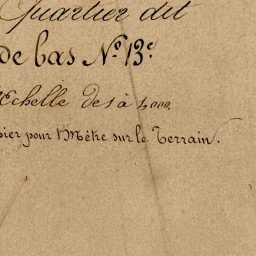 Quartier dit
de bas N.º 13.e
Echelle de 1 à 4000.
pour 1 Mètre sur le Terrain.